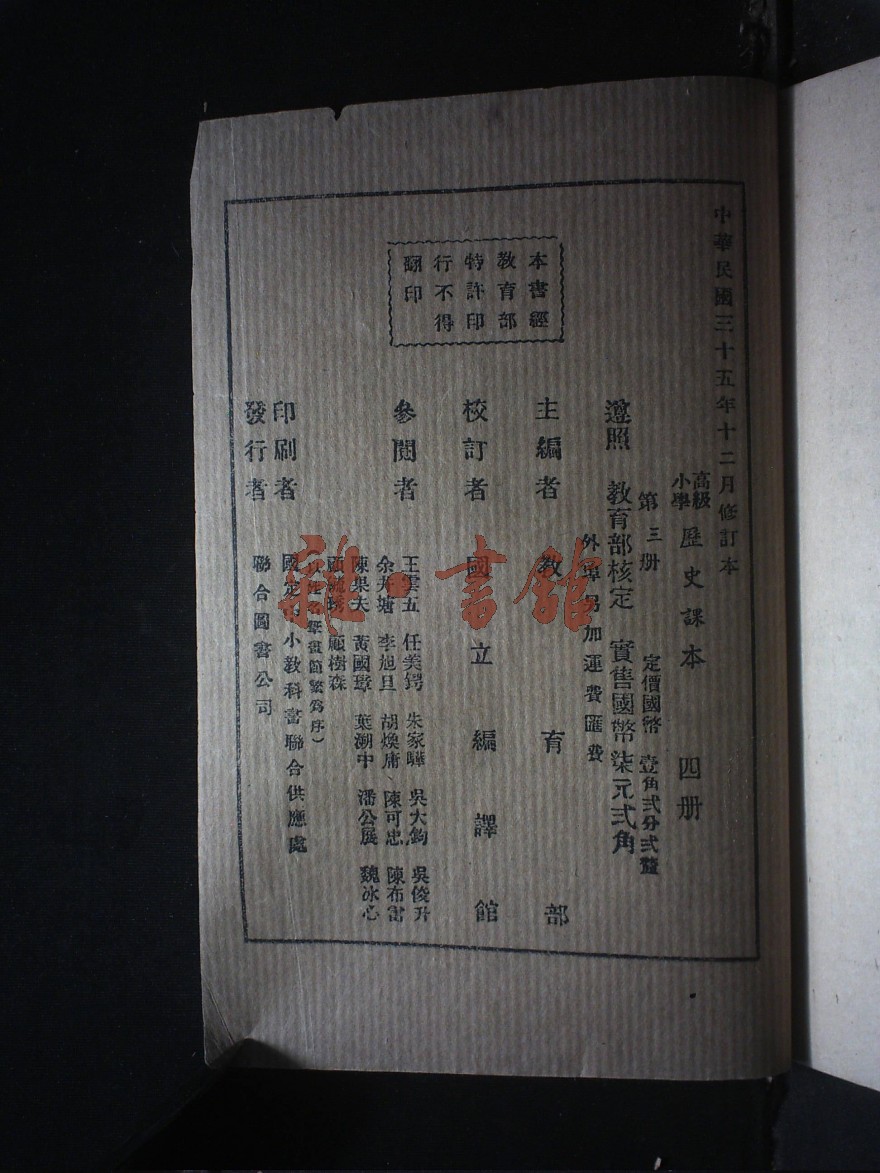 中華民國三十五年十二月修訂本
高級
小學
歷史課本 四册
第三册 定價國幣 壹角弍分弍釐
遵照 教育部核定 實售國幣柒元弍角
外埠另加運費匯費
本書經
教育部
特許印
行不得
翻印
主編者 教育部
校訂者 國立編譯館
參閱者
王雲五 任美鍔 朱家驊 吳大鈞 吳俊升
余井塘 李旭旦 胡煥庸 陳可忠 陳布雷
陳果夫 黃國璋 葉溯中 潘公展 魏冰心
顧毓琇 顧樹森
(以姓名筆畫簡繁爲序)
印刷者 國定中小教科書聯合供應處
發行者 聯合圖書公司
雜·書館